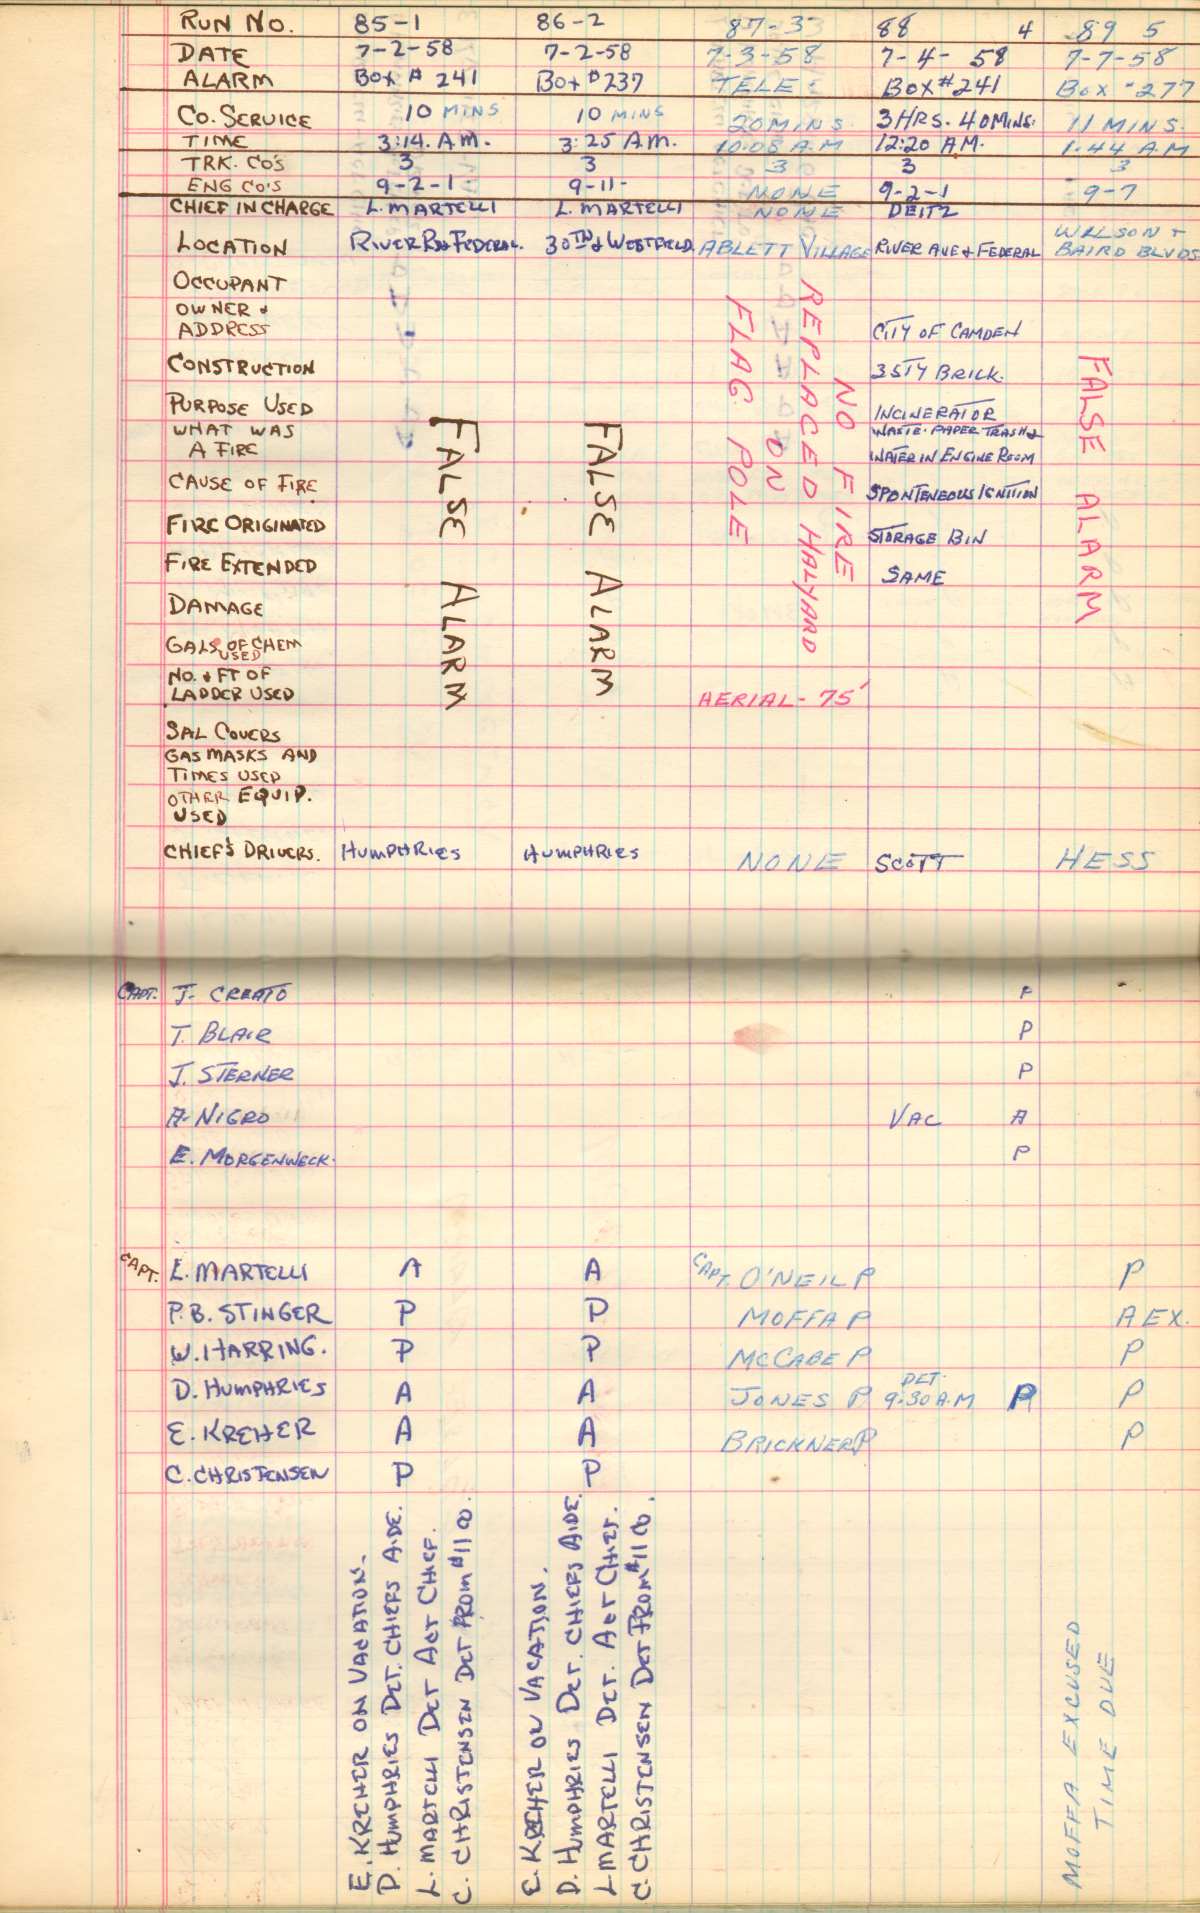 RUN NO. 85-1 86-2 87-3 88 4 89 5
DATE 7-2-58 7-2-58 7-3-58 7-4-58 7-7-58
ALARM BOX # 241 BOX #237 TELE BOX #241 BOX #277
CO. SERVICE 10 MINS 10 MINS 20 MINS. 3 HRS. 40 MINS. 11 MINS.
TIME 3:14. A.M. 3:25 A.M. 10:08 A.M 12:20 AM. 1:44 A.M
TRK. CO'S 3 3 3 3 3
ENG CO'S 9-2-1 9-11- NONE 9-2-1 9-7
CHIEF IN CHARGE L. MARTELLI L. MARTELLI NONE DEITZ
LOCATION RIVER RD & FEDERAL. 30TH & WESTFIELD. ABLETT VILLAGE RIVER AVE & FEDERAL WILSON + BAIRD BLVDS
OCCUPANT
OWNER & ADDRESS CITY OF CAMDEN
CONSTRUCTION 3 STY BRICK.
PURPOSE USED INCINERATOR
WHAT WAS A FIRE WASTE-PAPER TRASH &
WATER IN ENGINE ROOM
CAUSE OF FIRE SPONTENEOUS IGNITION
FIRE ORIGINATED STORAGE BIN
FIRE EXTENDED SAME
DAMAGE
GALS OF CHEM USED
NO. & FT OF LADDER USED AERIAL - 75'
SAL COVERS
GAS MASKS AND TIMES USED
OTHER EQUIP. USED
FALSE ALARM
FALSE ALARM
NO FIRE
REPLACED HALYARD
ON
FLAG POLE
FALSE ALARM
CHIEF'S DRIVERS. HUMPHRIES HUMPHRIES NONE SCOTT HESS
CAPT. J. CREATO P
T. BLAIR P
J. STERNER P
A. NIGRO VAC A
E. MORGENWECK. P
CAPT. L. MARTELLI A A CAPT. O'NEIL P P
P.B. STINGER P P MOFFA P A EX.
W. HARRING. P P MCCABE P P
D. HUMPHRIES A A JONES P DET. 9:30 A.M P P
E. KREHER A A BRICKNER P P
C. CHRISTENSEN P P
E. KREHER ON VACATION.
D. HUMPHRIES DET. CHIEFS AIDE.
L. MARTELLI DET ACT CHIEF.
C. CHRISTENSEN DET FROM #11 CO.
E. KREHER ON VACATION.
D. HUMPHRIES DET. CHIEFS AIDE.
L MARTELLI DET. ACT CHIEF.
C. CHRISTENSEN DET FROM #11 CO.
MOFFA EXCUSED
TIME DUE